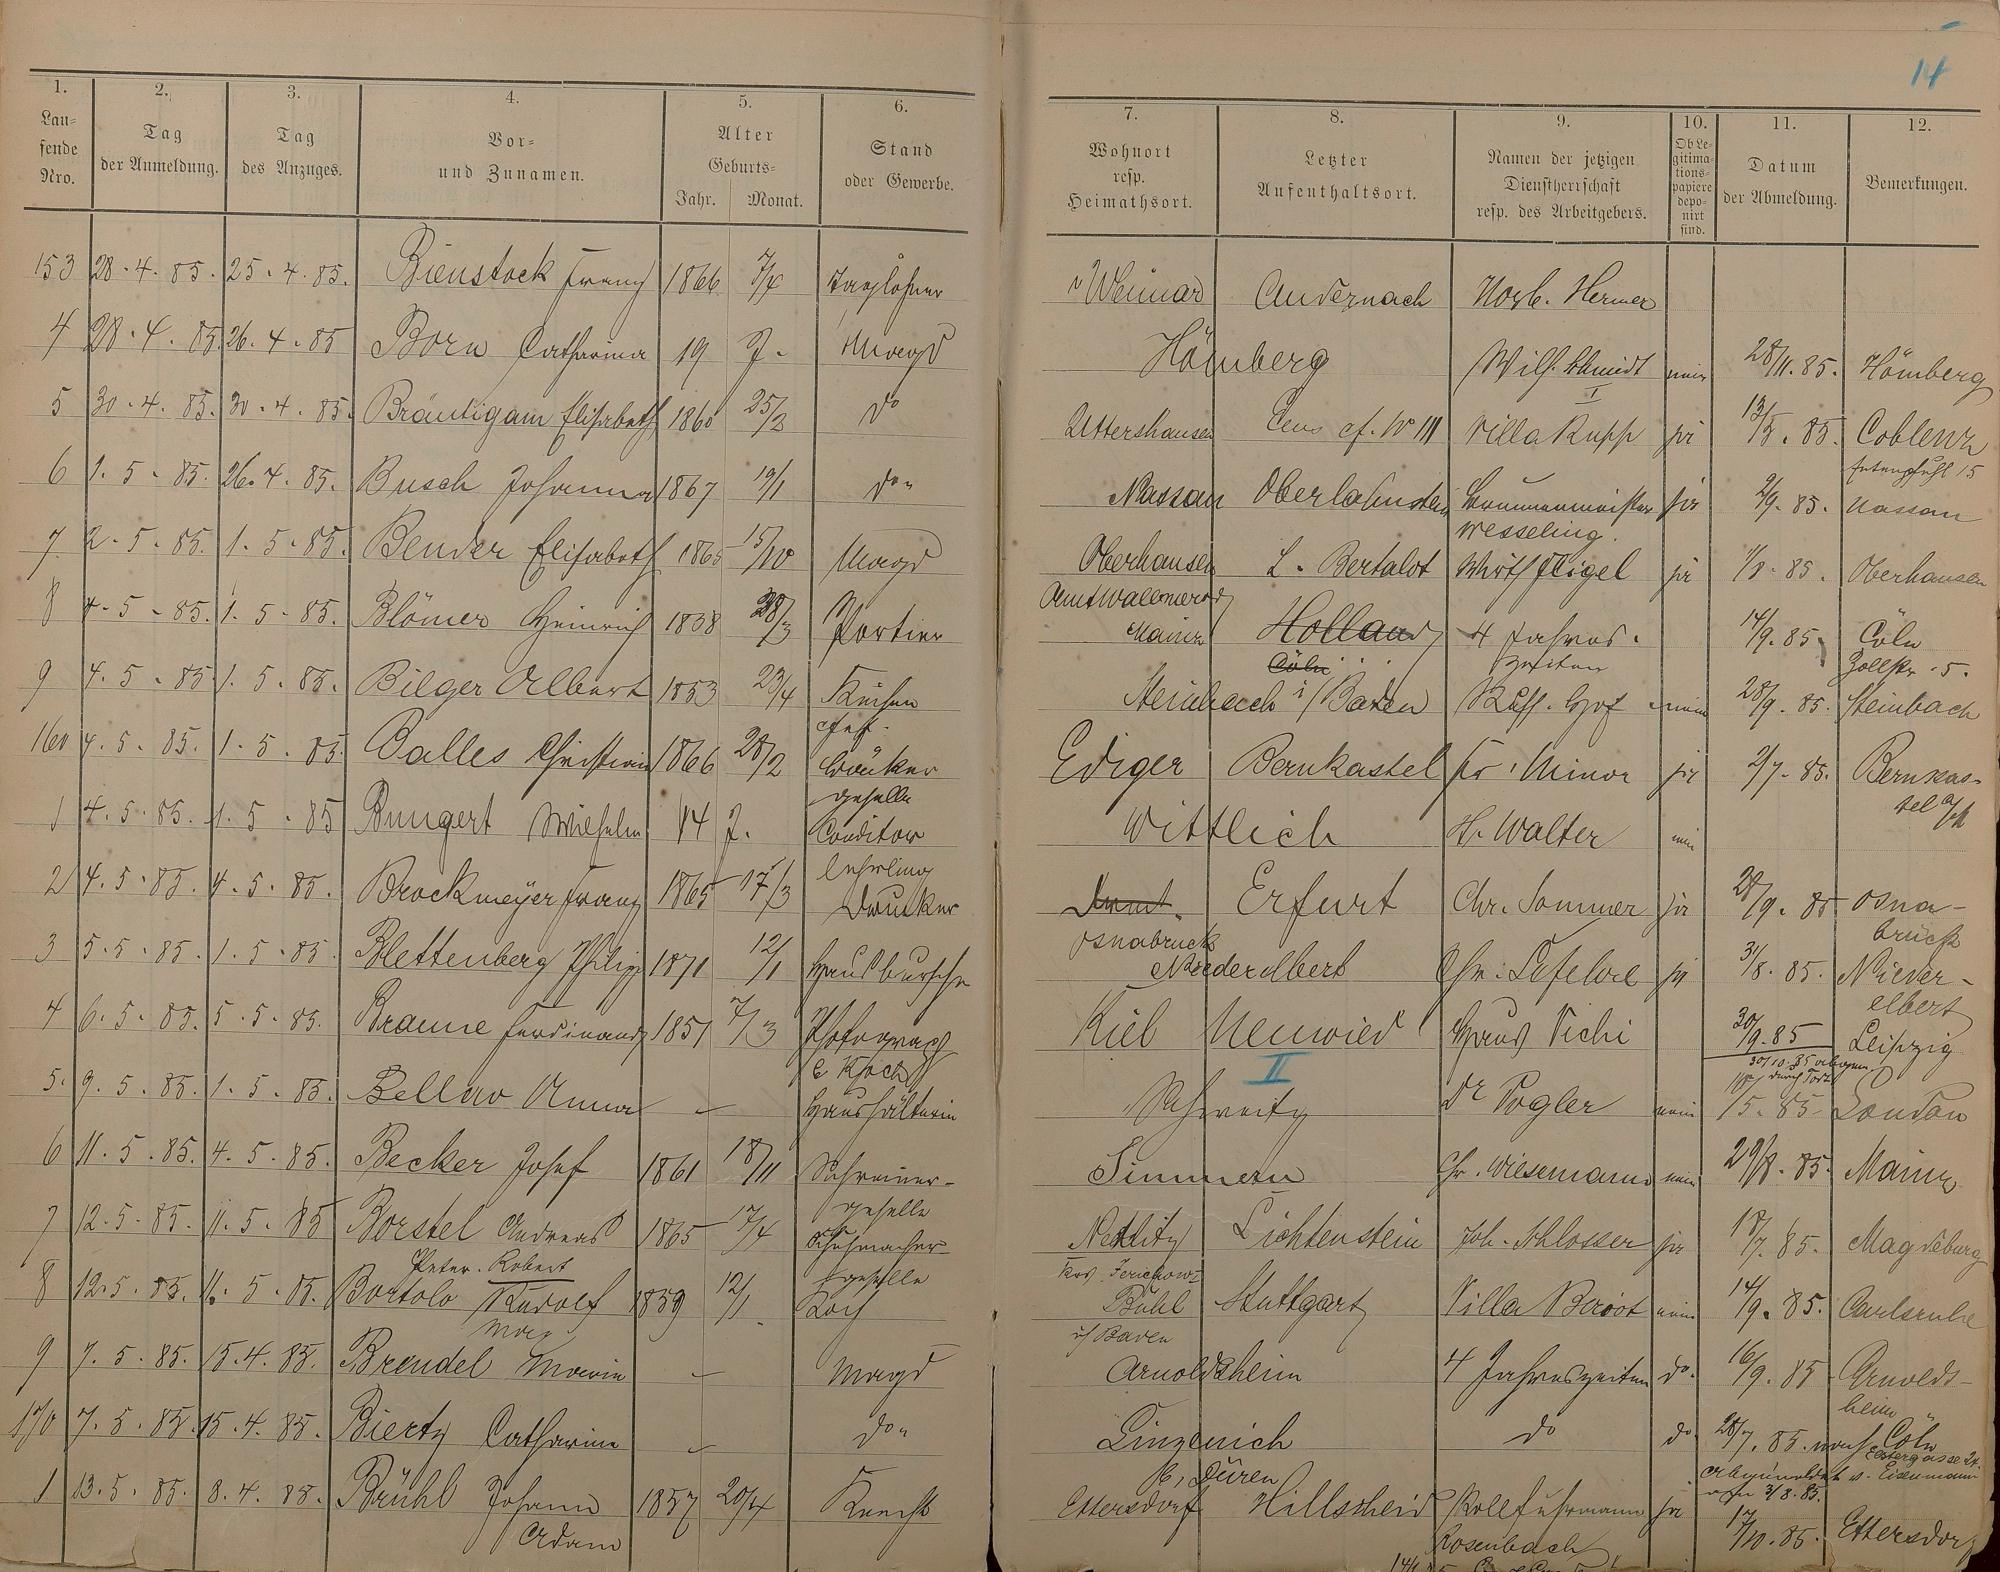 14
1. 2. 3. 4. 5. 6. 7. 8. 9. 10. 11. 12.
Lau-
fende
Nro.
Tag
der Anmeldung.
Tag
des Anzuges.
Vor-
und Zunamen.
Alter
Geburts-
Jahr. Monat.
Stand
oder Gewerbe.
Wohnort
resp.
Heimathsort.
Letzter
Aufenthaltsort.
Namen der jetzigen
Dienstherrschaft
resp. des Arbeitgebers.
Ob Le-
gitima-
tions-
papiere
depo-
nirt
sind.
Datum
der Abmeldung.
Bemerkungen.
153 28.4.85. 25.4.85. Bienstock Franz 1866 7/4 Taglöhner Weimar Andernach Norb. Hermes
4 28.4.85 26.4.85 Born Catharina 19 J. Magd Hömberg Wilh. Schmidt nein 28/11.85. Hömberg
I
5 30.4.85. 30.4.85. Bräutigam Elisabeth 1860 25/2 do Uttershausen Ems cf. No III Villa Rupp ja 13/5.85. Coblenz
6 1.5.85. 26.4.85. Busch Johanna 1867 19/1 do. Nassau Oberlahnstein Brunnenmeister ja 2/9.85. Nassau
Wesseling.
7 2.5.85. 1.5.85. Bender Elisabeth 1865 15/10 Magd Oberhausen L. Bertalot Wirth Flügel ja 1/8.85. Oberhausen
Amt Wallmerod
8 4.5.85. 1.5.85. Blömer Heinrich 1838 28/3 Portier Mainz Holland 4 Jahres- 14/9.85. Cöln
Cöln zeiten Zollstr. 5.
9 4.5.85 1.5.85. Bilger Albert 1853 23/4 Küchen Steinbach i/Baden Russ. Hof nein 28/9.85. Steinbach
chef.
160 4.5.85. 1.5.85. Balles Christian 1866 28/2 Bäcker Ediger Bernkastel Fr. Minor ja 2/7.85. Bernkas-
geselle tel a/M
1 4.5.85. 1.5.85 Bungert Wilhelm 14 J. Conditor Wittlich H. Walter nein
lehrling
2 4.5.85. 4.5.85. Brockmeyer Franz 1865 17/3 Drucker Erfurt Chr. Sommer ja 28/9.85 Osna-
Osnabruck brück
3 5.5.85. 1.5.85. Blettenberg Philipp 1871 12/1 Hausbursche Niederelbert Chr. Lefebre ja 31/8.85. Niever-
elbert
4 6.5.85. 5.5.85. Braune Ferdinand 1851 7/3 Photograph Kiel Neuwied Haus Vichi 30/9.85 Leipzig
b. Koch II
5. 9.5.85. 1.5.85. Bellav Anna – Haushälterin Schweitz Dr Vogler nein 15.85 London
6 11.5.85. 4.5.85. Becker Josef 1861 18/11 Schreiner- Simmern Chr. Wiesemann nein 29/8.85. Mainz
geselle
7 12.5.85. 11.5.85 Borstel Andreas 1865 17/4 Schuhmacher Nedlitz Lichtenstein Joh. Schlosser ja 18/7.85. Magdeburg
Peter Robert geselle Krs. Jerichow I
8 12.5.85. 11.5.85. Bortolo Rudolf 1859 12/1 Koch Bühl Stuttgart Villa Beriot nein 14/9.85. Carlsruhe
Max i/Baden
9 7.5.85. 15.4.85. Brendel Maria – Magd Arnoldsheim 4 Jahreszeiten do. 16/9.85 Arnolds-
heim
170 7.5.85. 15.4.85. Biertz Catharina – do. Linzenich do do. 28/7.85. nach Cöln
b. Düren
1 13.5.85. 8.4.85. Brühl Johann 1857 20/4 Knecht Ettersdorf Hillscheid Rollfuhrmann ja 17/10.85. Ettersdorf
Adam Rosenbach